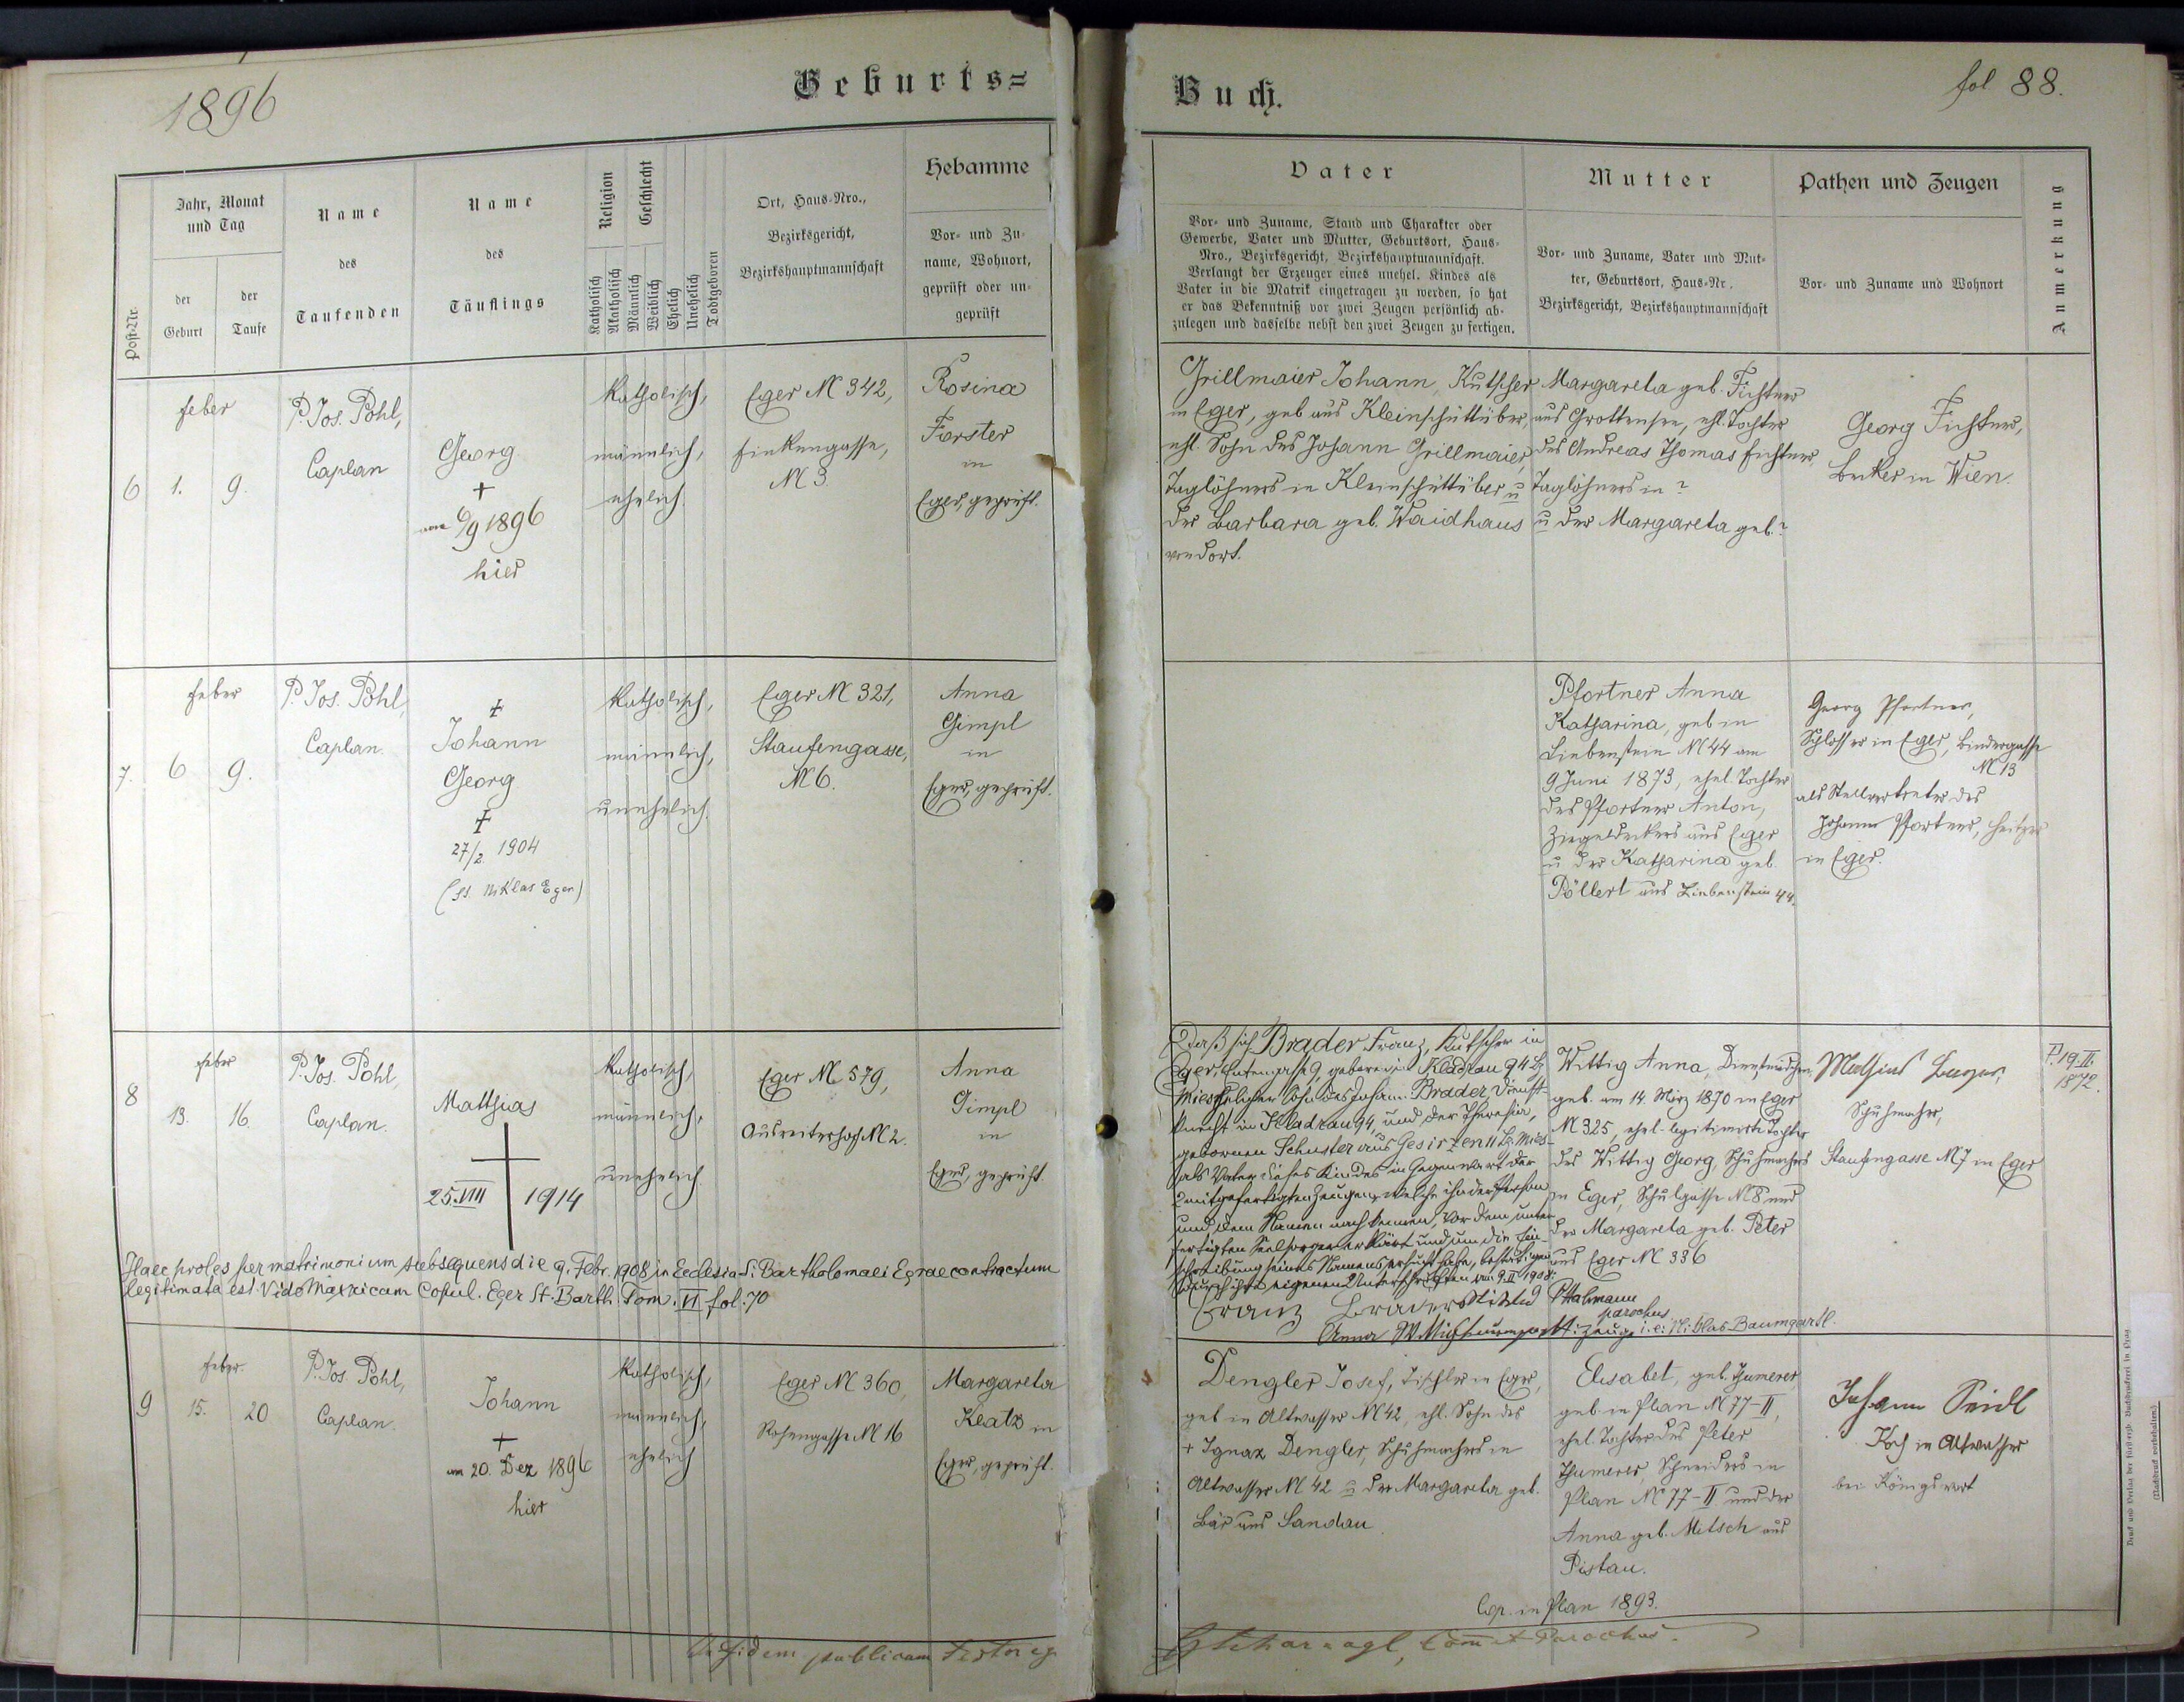 1896
Geburts=
Buch.
fol 88.
Post-Nr.
Jahr, Monat
und Tag
der
Geburt
der
Taufe
Name
des
Taufenden
Name
des
Täuflings
Religion
Katholisch
Akatholisch
Geschlecht
Männlich
Weiblich
Ehelich
Unehelich
Todtgeboren
Ort, Haus-Nro.,
Bezirksgericht,
Bezirkshauptmannschaft
Hebamme
Vor- und Zu-
name, Wohnort,
geprüft oder un-
geprüft
Vater
Vor- und Zuname, Stand und Charakter oder
Gewerbe, Vater und Mutter, Geburtsort, Haus-
Nro., Bezirksgericht, Bezirkshauptmannschaft.
Verlangt der Erzeuger eines unehel. Kindes als
Vater in die Matrik eingetragen zu werden, so hat
er das Bekenntniß vor zwei Zeugen persönlich ab-
zulegen und dasselbe nebst den zwei Zeugen zu fertigen.
Mutter
Vor- und Zuname, Vater und Mut-
ter, Geburtsort, Haus-Nr.,
Bezirksgericht, Bezirkshauptmannschaft
Pathen und Zeugen
Vor- und Zuname und Wohnort
Anmerkung
6
Feber
1.
9.
P. Jos. Pohl,
Caplan
Georg
+
am 6/9 1896
hier
katholisch,
männlich,
ehelich
Eger N 342,
Finkengasse,
N 3
Rosina
Forster
in
Eger, geprüft.
Grillmaier Johann, Kutscher
in Eger, geb aus Kleinschüttüber,
ehl. Sohn des Johann Grillmaier,
Taglöhners in Kleinschüttüber u
der Barbara geb. Waidhaus
von dort.
Margareta geb. Fichtner
aus Grottensee, ehl. Tochter
des Andreas Thomas Fichtner,
Taglöhners in ?
u der Margareta geb. ?
Georg Fichtner,
Bäcker in Wien.
7.
Feber
6
9.
P. Jos. Pohl,
Caplan.
+
Johann
Georg
+
27/2. 1904
(St. Niklas Eger)
katholisch,
männlich,
unehelich.
Eger N 321,
Staufengasse,
N 6.
Anna
Gimpl
in
Eger, geprüft.
Pfortner Anna
Katharina, geb in
Liebenstein N 44 am
9 Juni 1873, ehel. Tochter
des Pfortner Anton,
Ziegeldeckers aus Eger
u. der Katharina geb.
Pöllert aus Liebenstein 44.
Georg Pfortner,
Schlosser in Eger, Bindergasse
N 13
als Stellvertreter des
Johann Pfortner, Heitzer
in Eger.
8
Feber
13.
16.
P. Jos. Pohl,
Caplan.
Matthias
25. VIII 1914
katholisch,
männlich,
unehelich
Eger N 579,
Ausreiterhof N 2.
Anna
Gimpl
in
Eger, geprüft
Daß sich Brader Franz, Kutscher in
Eger, 9, geboren in Kladrau 94 Bz
Mies ehelicher Sohn des Johann Brader, Dienst-
knecht in Kladrau 94, und der Theresia,
gebornen Schuster aus Gesirzen 11 Bz Mies
als Vater dieses Kindes in Gegenwart der
2 mitgefertigten Zeugen, welche ihn der Person
und dem Namen nach kennen, vor dem unter-
fertigten Seelsorger erklärt und um die Ein-
schreibung seines Namens ersucht habe, bestätigen
durch ihre eigenen Unterschriften am 9. II 1908:
Franz Brader
P. Halmann
parochus
Anna Wittig
Zeuge i. e. Niklas Baumgartl.
Wittig Anna, Dienstmädchen,
geb. am 14. März 1870 in Eger
N 325, ehel. legitimirte Tochter
des Wittig Georg, Schuhmachers
in Eger, Schulgasse N 8 und
der Margareta geb. Peter
aus Eger N 336
Mathias Burger,
Schuhmacher,
Staufengasse N 7 in Eger
P. 19. II.
1872.
Haec proles per matrimonium subsequens die 9. Febr. 1908 in Ecclesia S. Bartholomaei Egrae contractum
legitimata est. Vide Matricam Copul. Eger St. Barth. Tom. VI fol. 70
9
Feber.
15.
20
P. Jos. Pohl,
Caplan.
Johann
+
am 20. Dez 1896
hier
katholisch,
männlich,
ehelich
Eger N 360,
Rosengasse N 16
Margareta
Klatz in
Eger, geprüft.
Dengler Josef, Tischler in Eger,
geb in Altwasser N 42, ehl. Sohn des
+ Ignaz Dengler, Schuhmachers in
Altwasser N 42 u der Margareta geb.
Bär aus Sandau.
Elisabet, geb. Thumerer,
geb. in Plan N 77-II,
ehel. Tochter des Peter
Thumerer, Schneiders in
Plan N 77-II und der
Anna geb. Metsch aus
Pistau.
Cop. in Plan 1893.
Johann Seidl
Koch in Altwasser
bei Königswart
In fidem publicam testor
Parochus.
Druck und Verlag der fürsterzb. Buchdruckerei in Prag
(Nachdruck vorbehalten.)